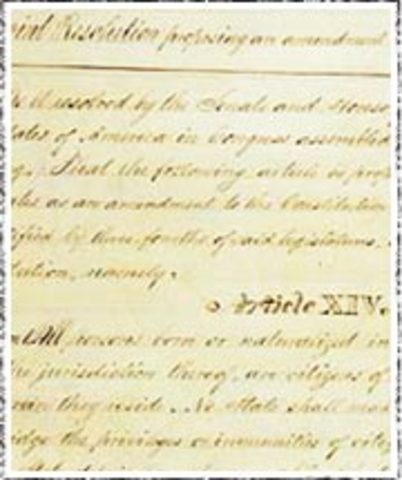 oint Resolution proposing an amendment
Be it resolved by the Senate and House
tates of America in Congress assembled
g, That the following article be prop
ates as an amendment to the Constitution
ified by three fourths of said legislatures,
itution, namely:
Article XIV.
All persons born or naturalized in
the jurisdiction thereof, are citizens of
erein they reside. No State shall mak
idge the privileges or immunities of citiz